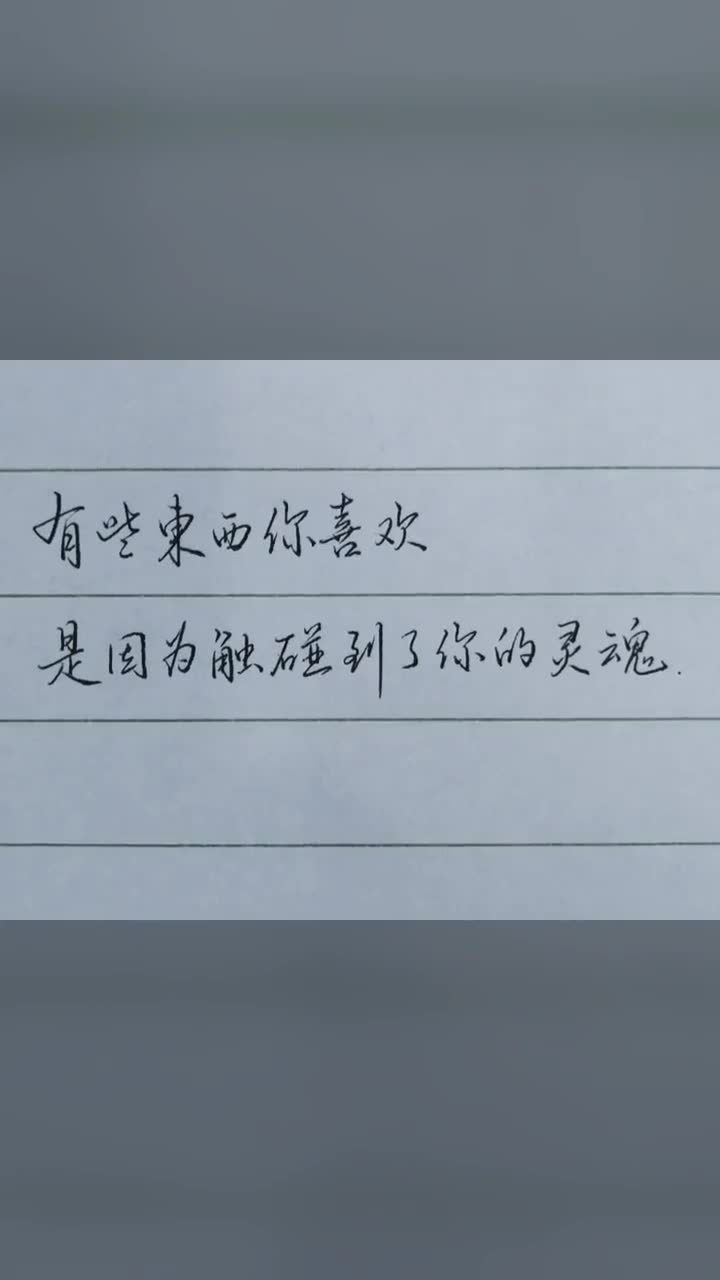 有些東西你喜欢
是因为触碰到了你的灵魂.